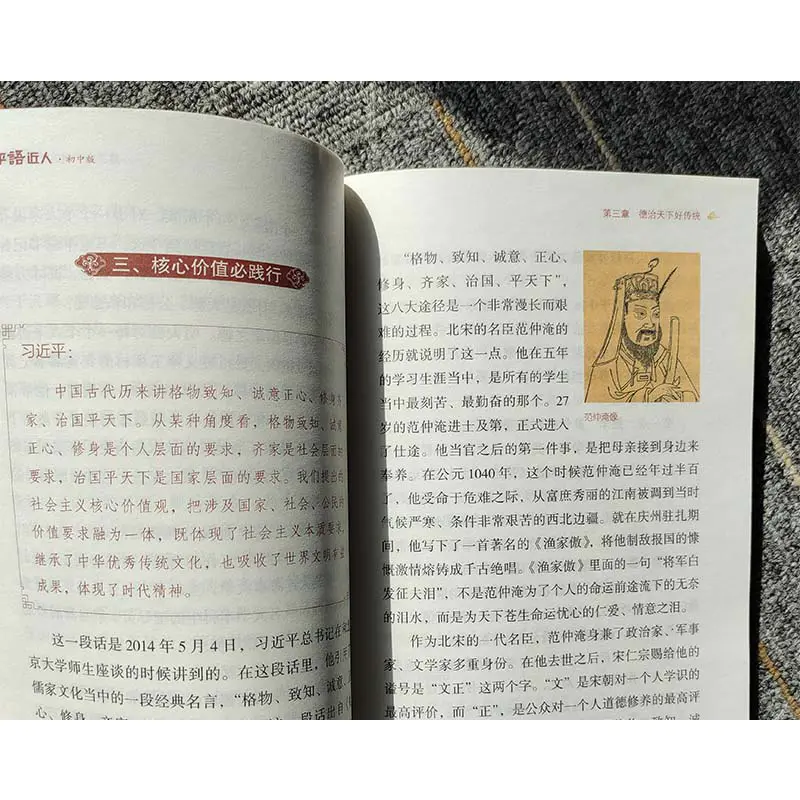 平語近人·初中版
三、核心价值必践行
习近平：
中国古代历来讲格物致知、诚意正心、修身齐
家、治国平天下。从某种角度看，格物致知、诚意
正心、修身是个人层面的要求，齐家是社会层面的
要求，治国平天下是国家层面的要求。我们提出的
社会主义核心价值观，把涉及国家、社会、公民的
价值要求融为一体，既体现了社会主义本质要求，
继承了中华优秀传统文化，也吸收了世界文明有益
成果，体现了时代精神。
这一段话是2014年5月4日，习近平总书记在北
京大学师生座谈的时候讲到的。在这段话里，他引用
儒家文化当中的一段经典名言，“格物、致知、诚意、
心、修身、齐家、 段话出自
第三章 德治天下好传统
“格物、致知、诚意、正心、
修身、齐家、治国、平天下”，
这八大途径是一个非常漫长而艰
难的过程。北宋的名臣范仲淹的
经历就说明了这一点。他在五年
的学习生涯当中，是所有的学生
当中最刻苦、最勤奋的那个。27
岁的范仲淹进士及第，正式进入
了仕途。他当官之后的第一件事，是把母亲接到身边来
奉养。在公元1040年，这个时候范仲淹已经年过半百
了，他受命于危难之际，从富庶秀丽的江南被调到当时
气候严寒、条件非常艰苦的西北边疆。就在庆州驻扎期
间，他写下了一首著名的《渔家傲》，将他制敌报国的慷
慨激情熔铸成千古绝唱。《渔家傲》里面的一句“将军白
发征夫泪”，不是范仲淹为了个人的命运前途流下的无奈
的泪水，而是为天下苍生命运忧心的仁爱、情意之泪。
作为北宋的一代名臣，范仲淹身兼了政治家、军事
家、文学家多重身份。在他去世之后，宋仁宗赐给他的
谥号是“文正”这两个字。“文”是宋朝对一个人学识的
最高评价，而“正”，是公众对一个人道德修养的最高评
致知、诚
范仲淹像